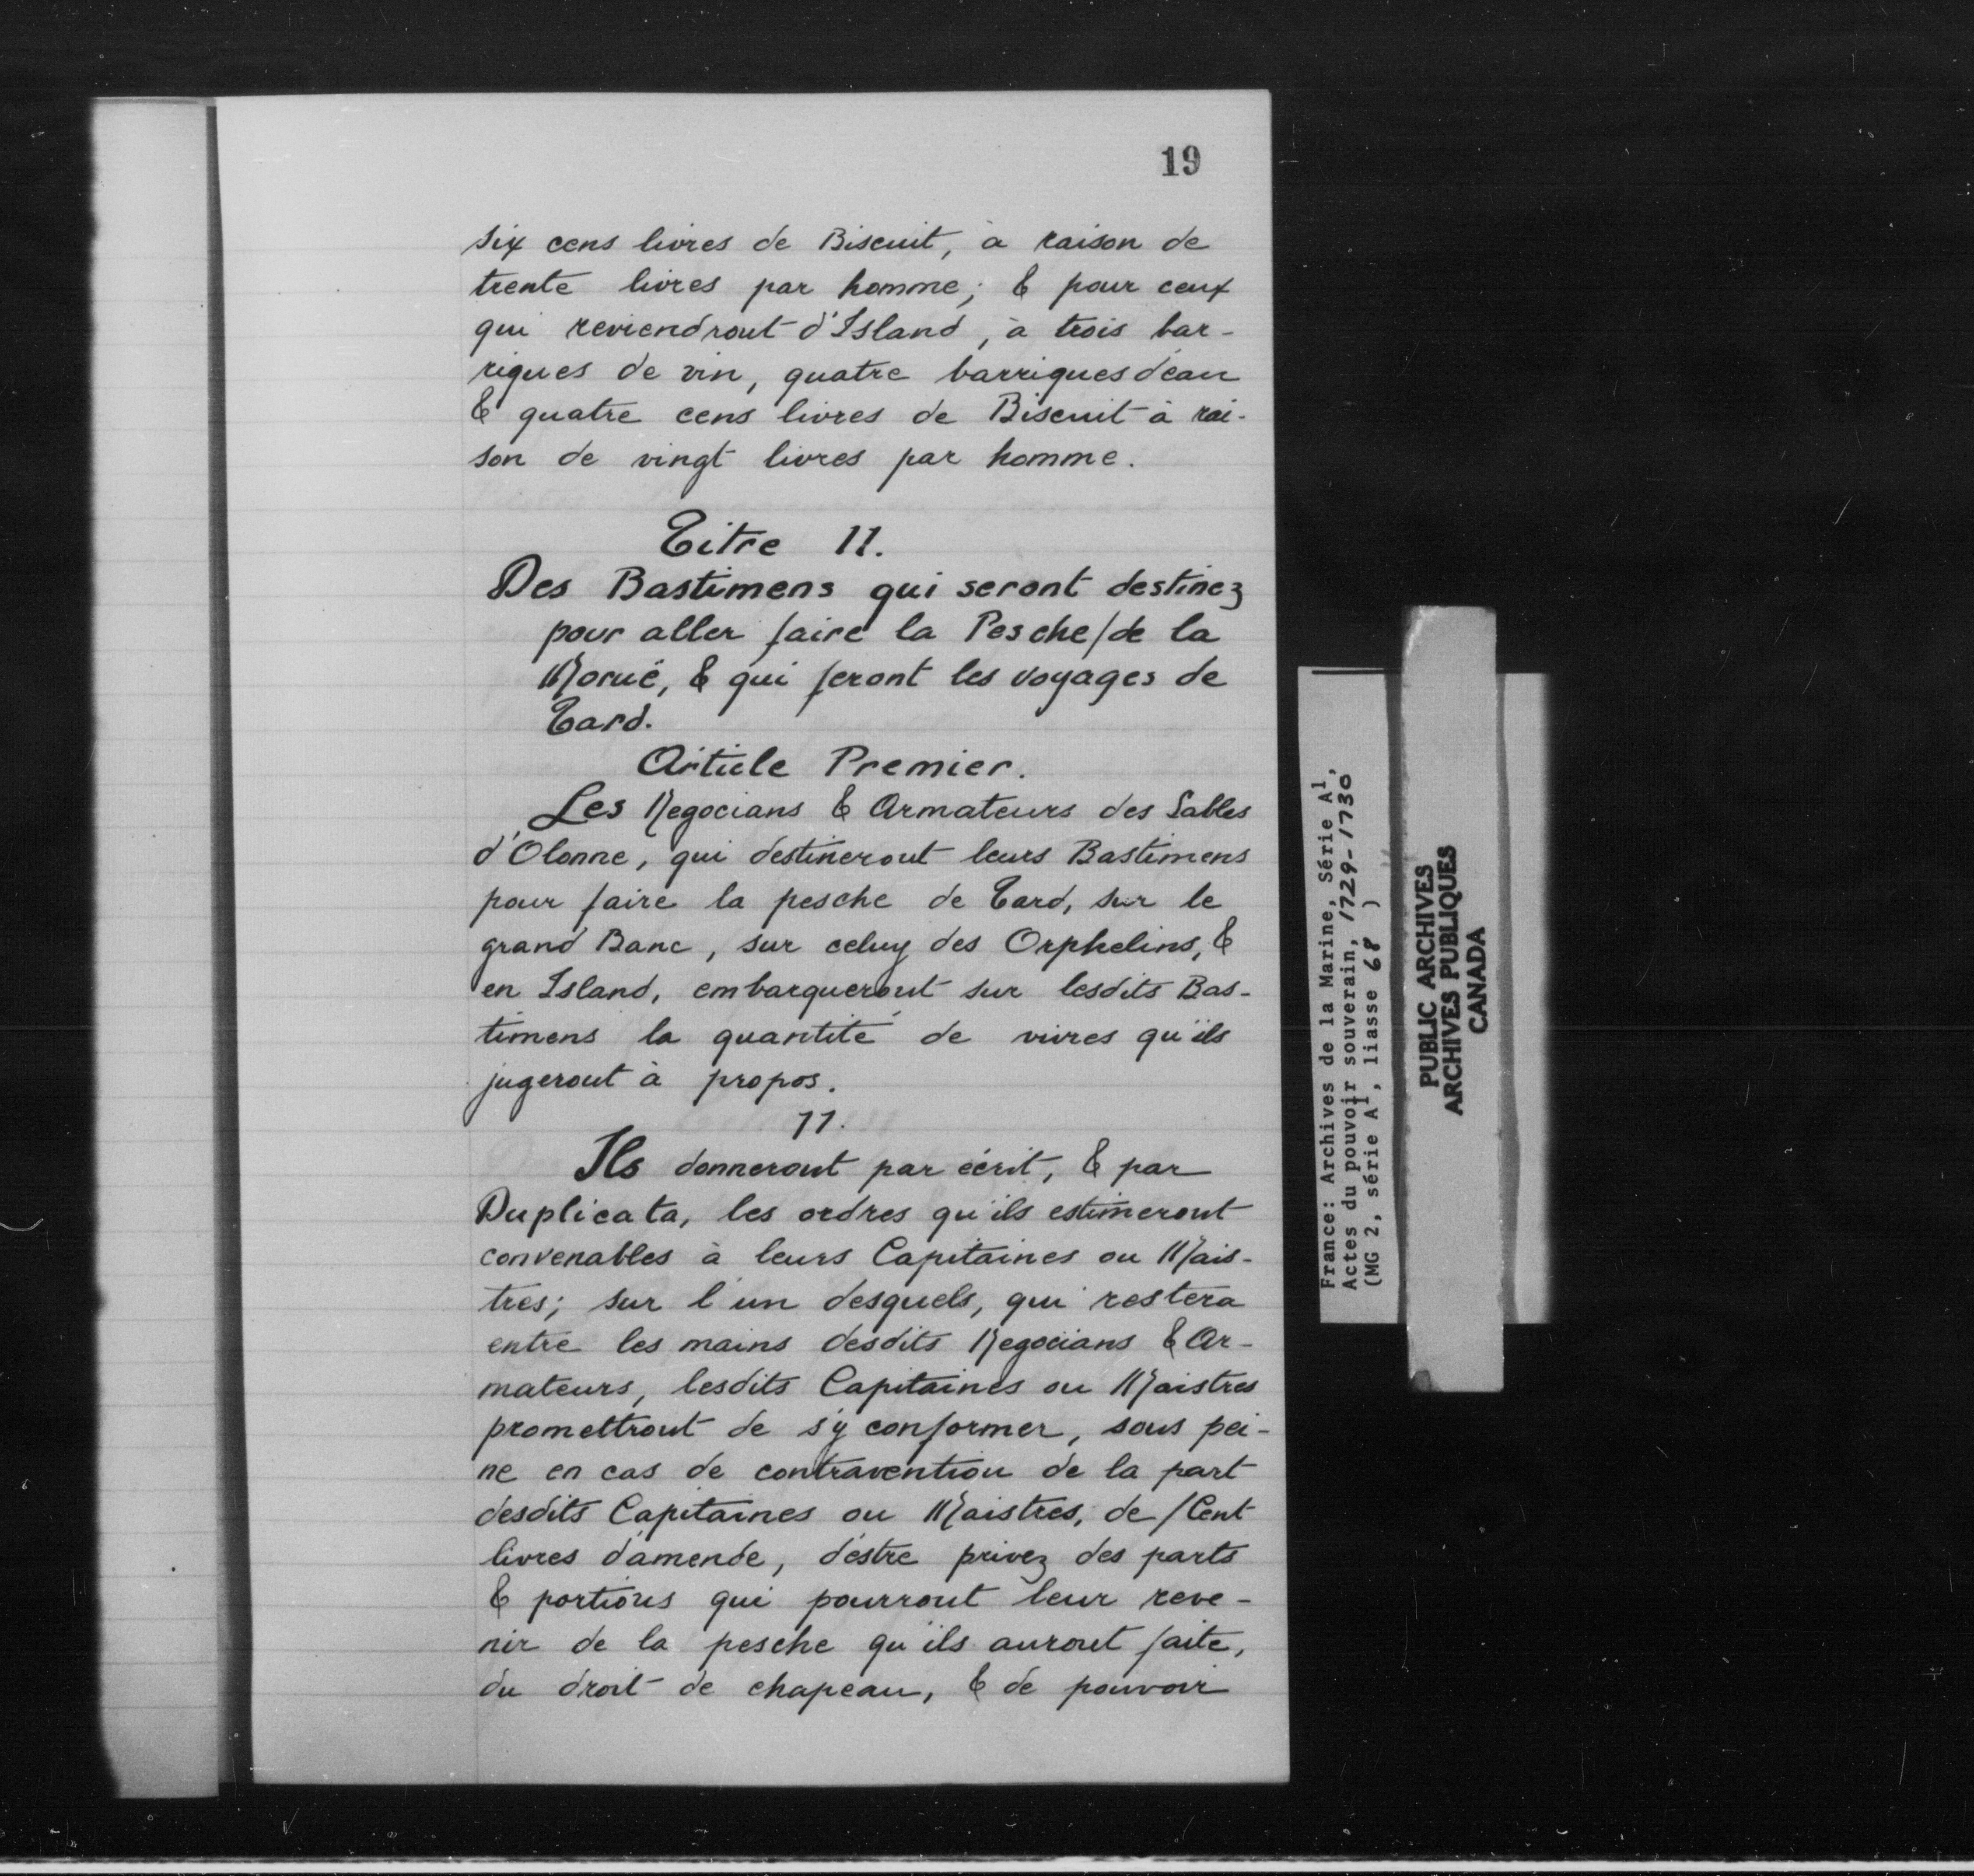 19
six cens livres de Biscuit, à raison de
trente livres par homme; & pour ceux
qui reviendront d'Island, à trois bar-
riques de vin, quatre barriques d'eau
& quatre cens livres de Biscuit à rai-
son de vingt livres par homme.
Titre II.
Des Bastimens qui seront destinez
pour aller faire la Pesche/de la
Moruë, & qui feront les voyages de
Tard.
Article Premier.
Les Negocians & Armateurs des Sables
d'Olonne, qui destineront leurs Bastimens
pour faire la pesche de Tard, sur le
grand Banc, sur celuy des Orphelins, &
en Island, embarqueront sur lesdits Bas-
timens la quantité de vivres qu'ils
jugeront à propos.
II.
Ils donneront par écrit, & par
Duplicata, les ordres qu'ils estimeront
convenables à leurs Capitaines ou Mais-
tres; sur l'un desquels, qui restera
entre les mains desdits Negocians & Ar-
mateurs, lesdits Capitaines ou Maistres
promettront de s'y conformer, sous pei-
ne en cas de contravention de la part
desdits Capitaines ou Maistres, de /Cent
livres d'amende, d'estre privez des parts
& portions qui pourront leur reve-
nir de la pesche qu'ils auront faite,
du droit de chapeau, & de pouvoir
France: Archives de la Marine, Série A1,
Actes du pouvoir souverain, 1729-1730
(MG 2, série A1, liasse 68 )
PUBLIC ARCHIVES
ARCHIVES PUBLIQUES
CANADA